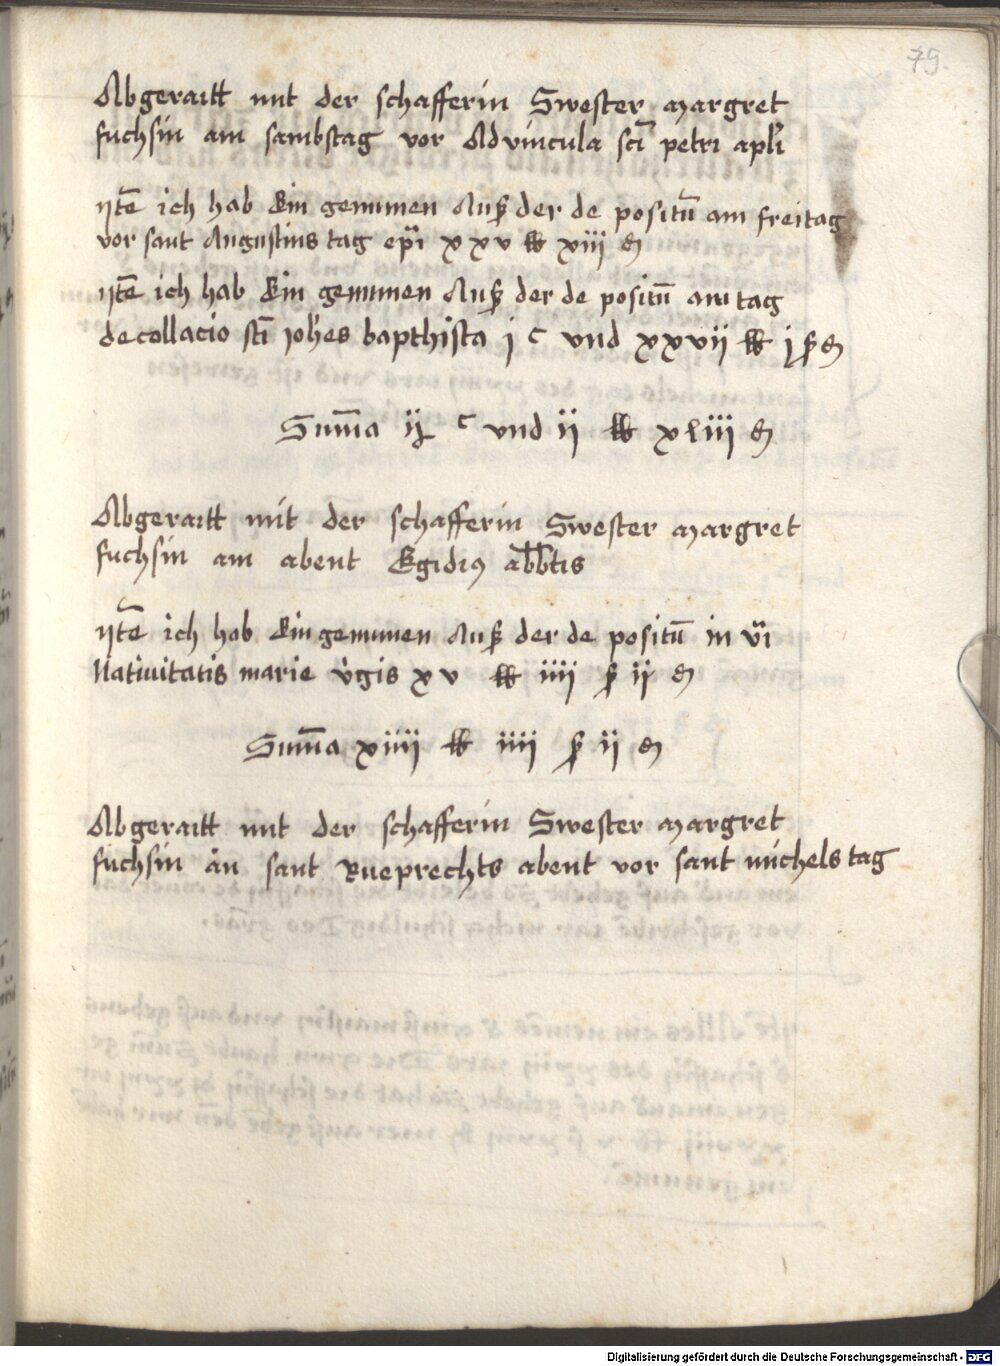 79.
Abgeraitt mit der schafferin Swester Margret
fuchsin am sambstag vor Advincula sci petri apli
Jtē ich hab Ein genumen Auß der de positū am freitag
vor sant Augustins tag epi xxv lb xiij d
Jtē ich hab Ein genumen Auß der de positū am tag
decollacio sci johes bapthista j c vnd xxvij lb j ß d
Suma ij c vnd ij lb xliij d
Abgeraitt mit der schafferin Swester Margret
fuchsin am abent Egidius abbtis
Jtē ich hab Ein genumen Auß der de positū in vi
Natiuitatis marie vgis xv lb iiij ß ij d
Suma xiiij lb iiij ß ij d
Abgeraitt mit der schafferin Swester Margret
fuchsin an sant Rueprechts abent vor sant michels tag
Digitalisierung gefördert durch die Deutsche Forschungsgemeinschaft - DFG